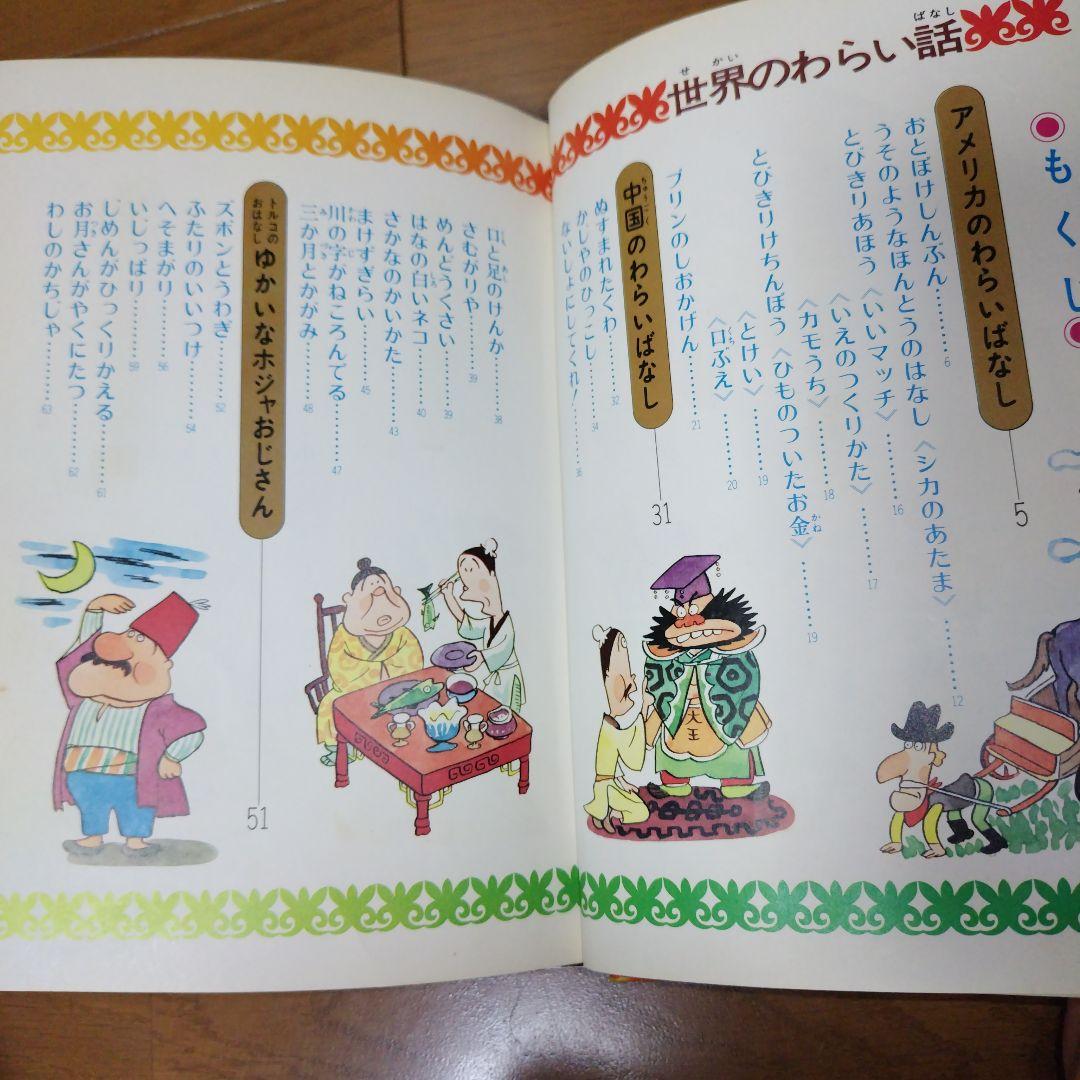 世界のわらい話
せかい
ばなし
もくじ
アメリカのわらいばなし
5
おとぼけしんぶん………6
うそのようなほんとうのはなし〈シカのあたま〉………12
とびきりあほう〈いいマッチ〉………16
〈いえのつくりかた〉………17
〈カモうち〉………18
とびきりけちんぼう〈ひものついたお金〉………19
かね
〈とけい〉………19
〈口ぶえ〉………20
くち
プリンのしおかげん………21
中国のわらいばなし
ちゅうごく
31
ぬすまれたくわ………32
かじやのひっこし………34
ないしょにしてくれ!………36
口と足のけんか………38
くち あし
さむがりや………39
めんどうくさい………39
はなの白いネコ………40
しろ
さかなのかいかた………43
まけずぎらい………45
川の字がねころんでる………47
かわ じ
三か月とかがみ………48
み づき
トルコのおはなし
ゆかいなホジャおじさん
51
ズボンとうわぎ………52
ふたりのいいつけ………54
へそまがり………56
いじっぱり………59
じめんがひっくりかえる………61
お月さんがやくにたつ………62
つき
わしのかちじゃ………63
大王